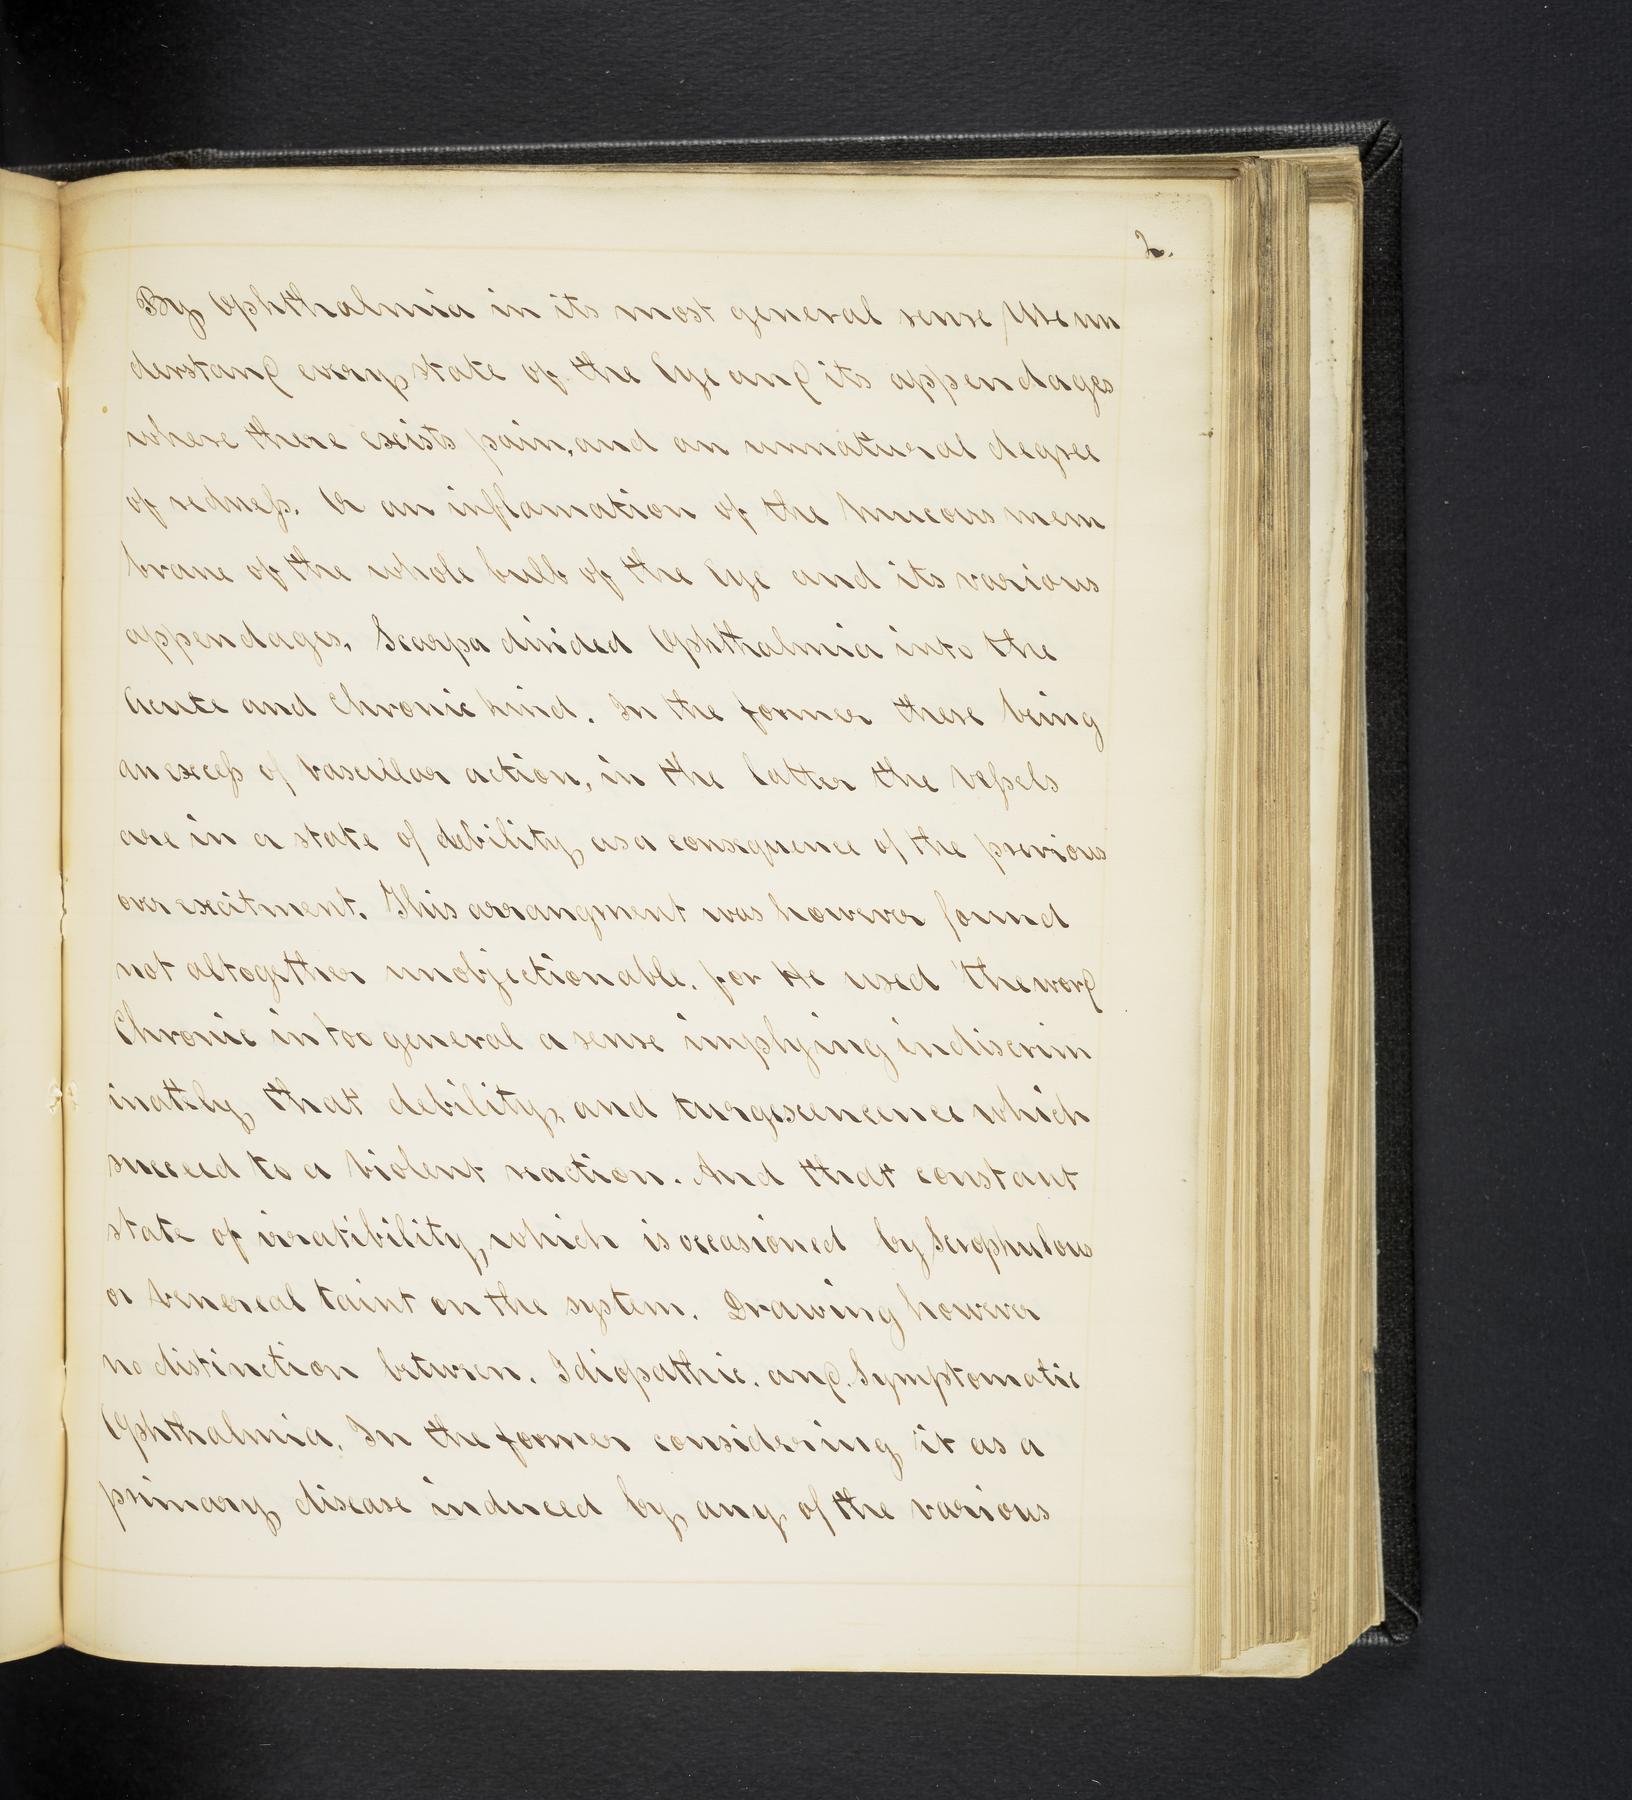 2.
By Ophthalmia in its most general sense, We un
derstand every state of the Eye and its appendages
where there exists pain, and an unnatural degree
of redness. Or an inflamation of the Mucous mem
brane of the whole bulb of the Eye and its various
appendages. Scarpa divided Ophthalmia into the
Acute and Chronic kind. In the former there being
an excess of Vascular action, in the latter the Vessels
are in a state of debility, as a consequence of the previous
over excitment. This arrangment was however found
not altogether unobjectionable. for He used the word
Chronic in too general a sense implying indiscrim
inattely that debility, and turgescencence which
succeed to a Violent reaction. And that constant
state of irratibility, which is occasioned by Scrophulous
or Venereal taint on the system. Drawing however
no distinction between. Idiopathic. and. Symptomatic
Ophthalmia. In the former considering it as a
primary disease induced by any of the various